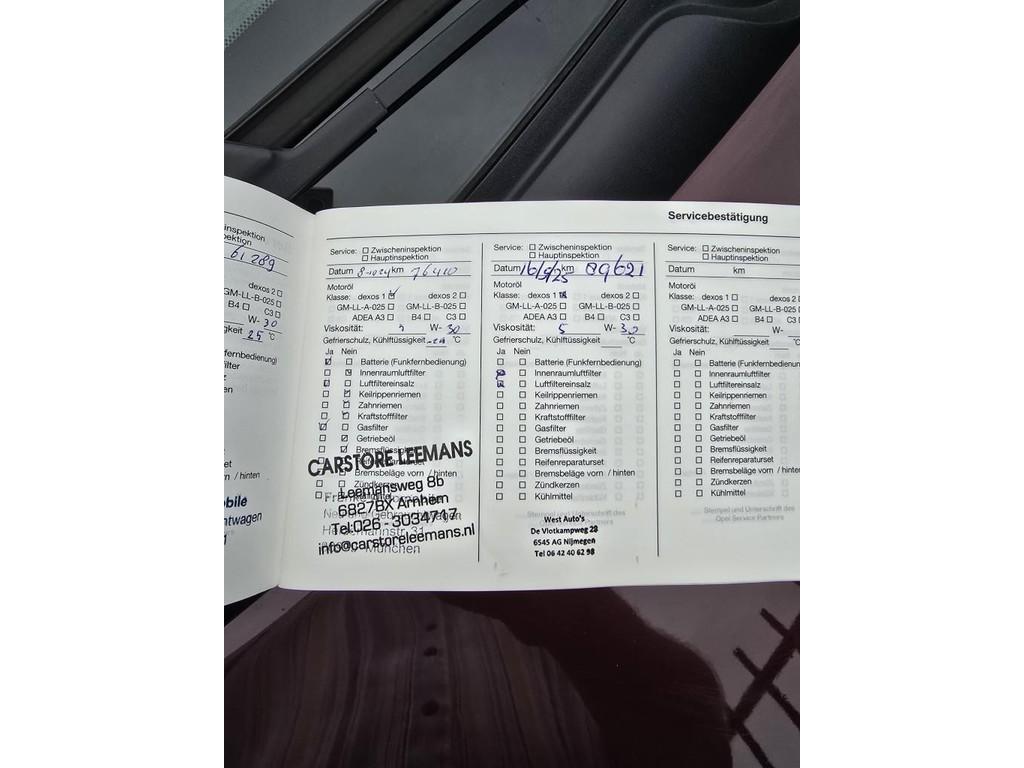 Servicebestätigung
inspektion
61289
dexos 2
GM-LL-B-025
B4 C3
W-30
25 °C
Service: Zwischeninspektion
Hauptinspektion
Datum 8-10-24 km 76410
Motoröl
Klasse: dexos 1 dexos 2
GM-LL-A-025 GM-LL-B-025
ADEA A3 B4 C3
Viskosität: 5 W-30
Gefrierschulz, Kühlftüssigkeit °C
Ja Nein
Batterie (Funkfernbedienung)
Innenraumluftfilter
Luftfiltereinsalz
Keilrippenriemen
Zahnriemen
Kraftstofffilter
Gasfilter
Getriebeöl
Bremsflüssigkeit
Reifenreparaturset
Bremsbeläge vorn / hinten
Zündkerzen
CARSTORE LEEMANS
Leemansweg 8b
6827BX Arnhem
Tel:026 - 3034717
info@carstoreleemans.nl
München
Service: Zwischeninspektion
Hauptinspektion
Datum 16/9/25 km 89621
Motoröl
Klasse: dexos 1 dexos 2
GM-LL-A-025 GM-LL-B-025
ADEA A3 B4 C3
Viskosität: 5 W-30
Gefrierschulz, Kühlftüssigkeit °C
Ja Nein
Batterie (Funkfernbedienung)
Innenraumluftfilter
Luftfiltereinsalz
Keilrippenriemen
Zahnriemen
Kraftstofffilter
Gasfilter
Getriebeöl
Bremsflüssigkeit
Reifenreparaturset
Bremsbeläge vorn / hinten
Zündkerzen
Kühlmittel
Stempel und Unterschrift des
Opel Service Partners
West Auto's
De Vlotkampweg 28
6545 AG Nijmegen
Tel 06 42 40 62 98
Service: Zwischeninspektion
Hauptinspektion
Datum km
Motoröl
Klasse: dexos 1 dexos 2
GM-LL-A-025 GM-LL-B-025
ADEA A3 B4 C3
Viskosität: W-
Gefrierschulz, Kühlftüssigkeit °C
Ja Nein
Batterie (Funkfernbedienung)
Innenraumluftfilter
Luftfiltereinsalz
Keilrippenriemen
Zahnriemen
Kraftstofffilter
Gasfilter
Getriebeöl
Bremsflüssigkeit
Reifenreparaturset
Bremsbeläge vorn / hinten
Zündkerzen
Kühlmittel
Stempel und Unterschrift des
Opel Service Partners